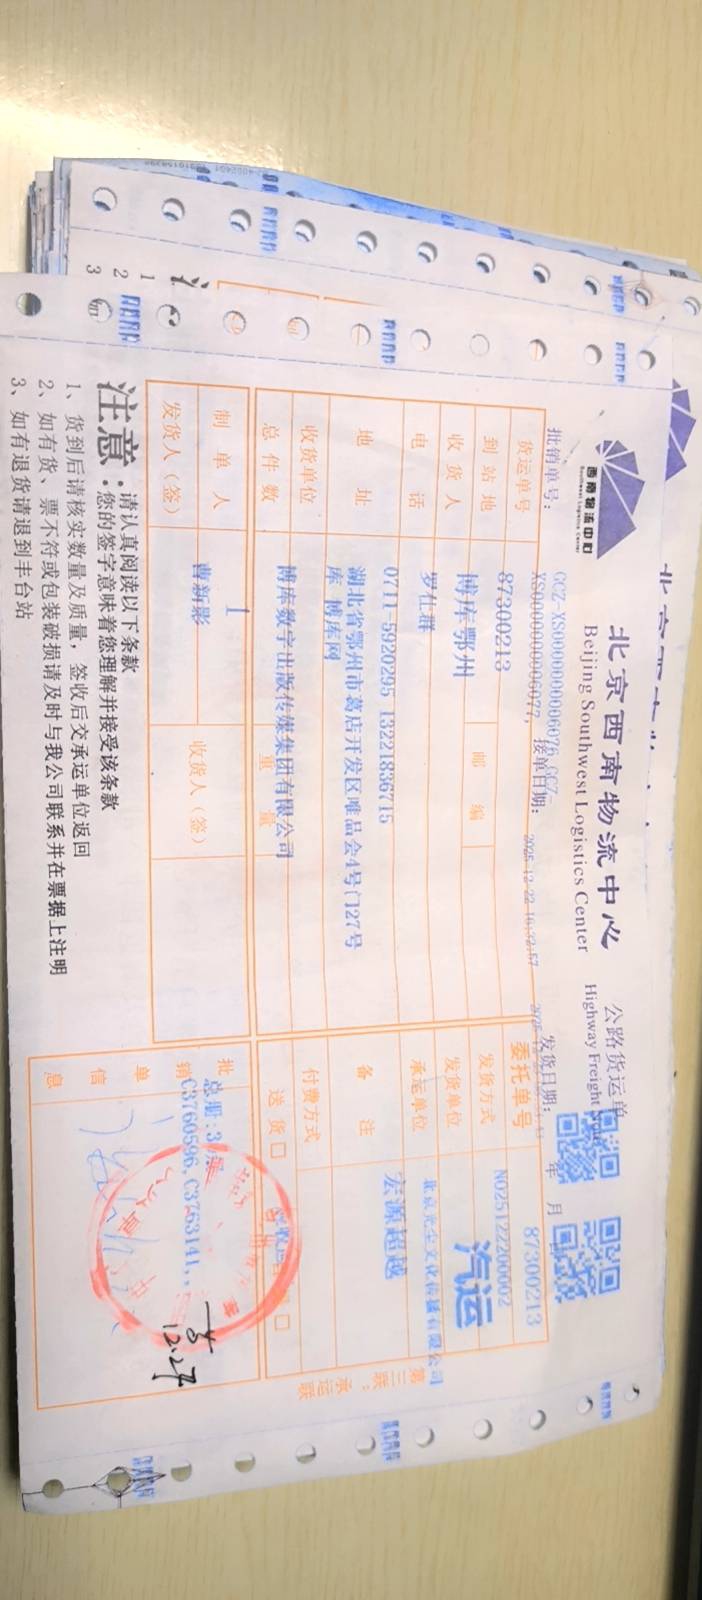 西南物流中心
Southwest Logistics Center
北京西南物流中心 公路货运单
Beijing Southwest Logistics Center Highway Freight
批销单号: GCZ-XS0000000006076,GCZ-
XS0000000006077, 接单日期: 2025-12-22 16:32:57 发货日期: 年 月
货运单号 87300213 委托单号 87300213
到站地 博库鄂州 邮编 发货方式 NO25122200002 汽运
收货人 罗仕群 发货单位 北京光尘文化传播有限公司
电话 0711-5920295 13221836715 承运单位 宏源超越
地址 湖北省鄂州市葛店开发区唯品会4号门27号
库 博库网
备注
收货单位 博库数字出版传媒集团有限公司 付费方式
总件数 1 重量 送货□
制单人 曹新影 收货人(签)
发货人(签)
批销单信息 总册:30
C3760596,C3763141,
12.27
第三联:承运联
注意: 请认真阅读以下条款
您的签字意味着您理解并接受该条款
1、货到后请核实数量及质量,签收后交承运单位返回
2、如有货、票不符或包装破损请及时与我公司联系并在票据上注明
3、如有退货请退到丰台站